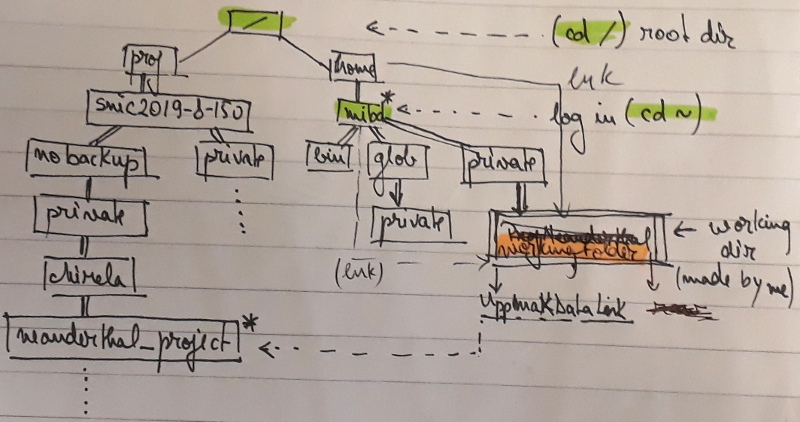 /
(cd /) root dir
proj
home
link
snic2019-8-150
miba*
log in (cd ~)
nobackup
private
bin
glob
private
private
private
working
dir
(made by me)
working folder
chirela
(link)
UppmaxDataLink
neanderthal_project*